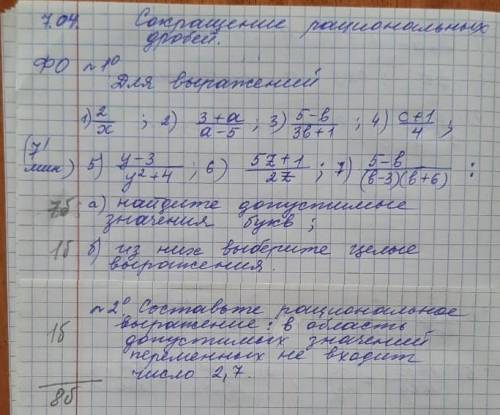 7.04. Сокращение рациональных
дробей.
ФО №1°
Для выражений
1) 2/x ; 2) (3+a)/(a-5) ; 3) (5-b)/(3b+1) ; 4) (c+1)/4 ;
(7/мин) 5) (y-3)/(y²+4) ; 6) (5z+1)/(2z) ; 7) (5-b)/((b-3)(b+6)) :
7б а) найдите допустимые
значения букв ;
1б б) из них выберите целые
выражения.
№2° Составьте рациональное
выражение: в область
1б допустимых значений
переменных не входит
число 2,7.
8б